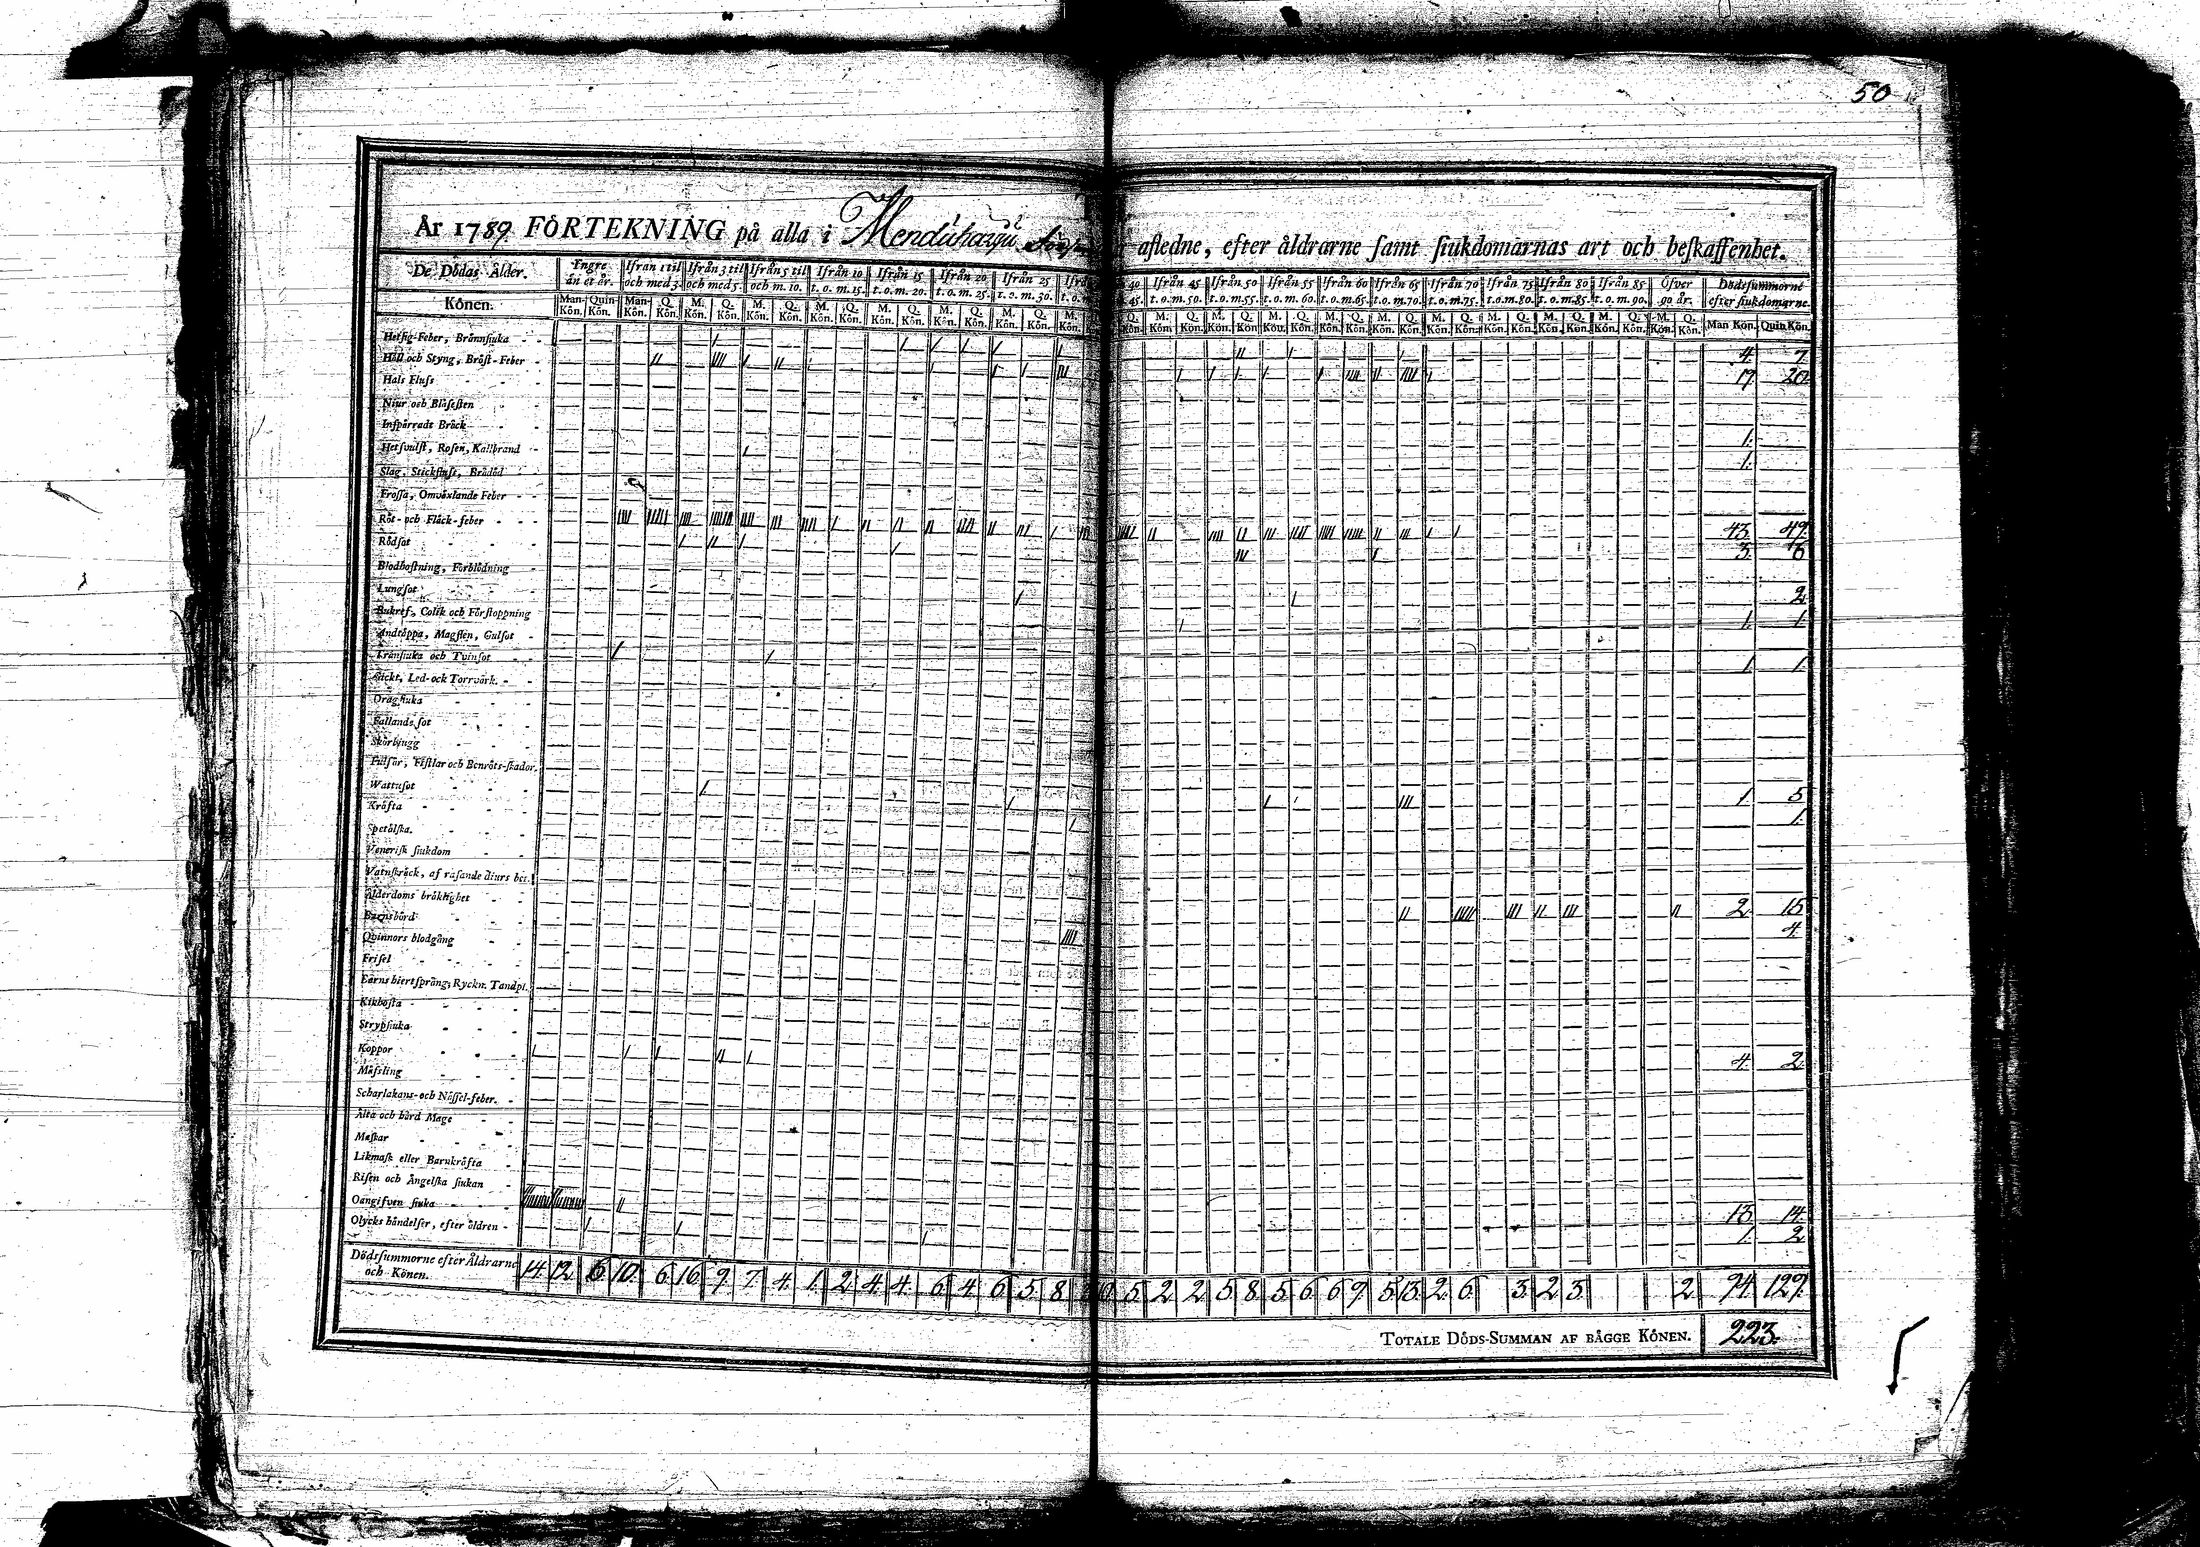 50
År 1789 FÖRTEKNING på alla i Mendüharju afledne, efter åldrarne samt siukdomarnas art och beskaffenhet.
De Dödas Ålder. Yngre än et år. Ifrån 1 til och med 3. Ifrån 3 til och med 5. Ifrån 5 til och m. 10. Ifrån 10 t. o. m. 15. Ifrån 15 t. o. m. 20. Ifrån 20 t. o. m. 25. Ifrån 25 t. o. m. 30. Ifrån 45 t. o. m. 50. Ifrån 50 t. o. m. 55. Ifrån 55 t. o. m. 60. Ifrån 60 t. o. m. 65. Ifrån 65 t. o. m. 70. Ifrån 70 t. o. m. 75. Ifrån 75 t. o. m. 80. Ifrån 80 t. o. m. 85. Ifrån 85 t. o. m. 90. Öfver 90 år. Dödssummorne efter siukdomarne.
Könen. Man-Kön. Quin-Kön. Man-Kön. Q. Kön. M. Kön. Q. Kön. M. Kön. Q. Kön. M. Kön. Q. Kön. M. Kön. Q. Kön. M. Kön. Q. Kön. M. Kön. Q. Kön. Man Kön. Quin Kön.
Hetsig-Feber, Brännsiuka 4. 7.
Håll och Styng, Bröst-Feber 17 20
Hals Fluss
Niur och Blåsesten
Inspärradt Bråck 1.
Hetsvulst, Rosen, Kallbrand 1.
Slag, Stickfluss, Brådöd
Frossa, Omväxlande Feber
Röt- och Fläck-feber 43. 49.
Rödsot 3. 6
Blodhostning, Förblödning
Lungsot 2
Bukref, Colik och Förstoppning 1. 1
Andtäppa, Magsten, Gulsot
Trånsiuka och Tvinsot 1. 1
Gickt, Led- och Torrvärk.
Dragsiuka
Fallandesot
Skörbjugg
Fulsår, Fistlar och Benröts-skador.
Wattusot 1 5
Kräfta 1.
Spetälska.
Venerisk siukdom
Vatnskräck, af rasande diurs bet.
Ålderdoms bräklighet 2. 15
Barnsbörd 4.
Qvinnors blodgång
Frisel
Barns hiertspräng, Ryckn. Tandpl.
Kikhosta
Strypsiuka
Koppor 4. 2.
Mässling
Scharlakans- och Nässel-feber.
Älta och hård Mage
Maskar
Likmask eller Barnkräfta
Risen och Ängelska siukan
Oangifven siuka 13. 14.
Olycks händelser, efter åldren 1. 2
Dödssummorne efter Åldrarne och Könen. 14. 12. 6. 10. 6. 16. 9. 7. 4. 1. 2. 4. 4. 6. 4. 6. 5. 8. 5. 2 2. 5 8. 5. 6. 6 9. 5. 13. 2. 6. 3. 2. 3. 2. 94. 129.
TOTALE DÖDS-SUMMAN AF BÅGGE KÖNEN. 223.